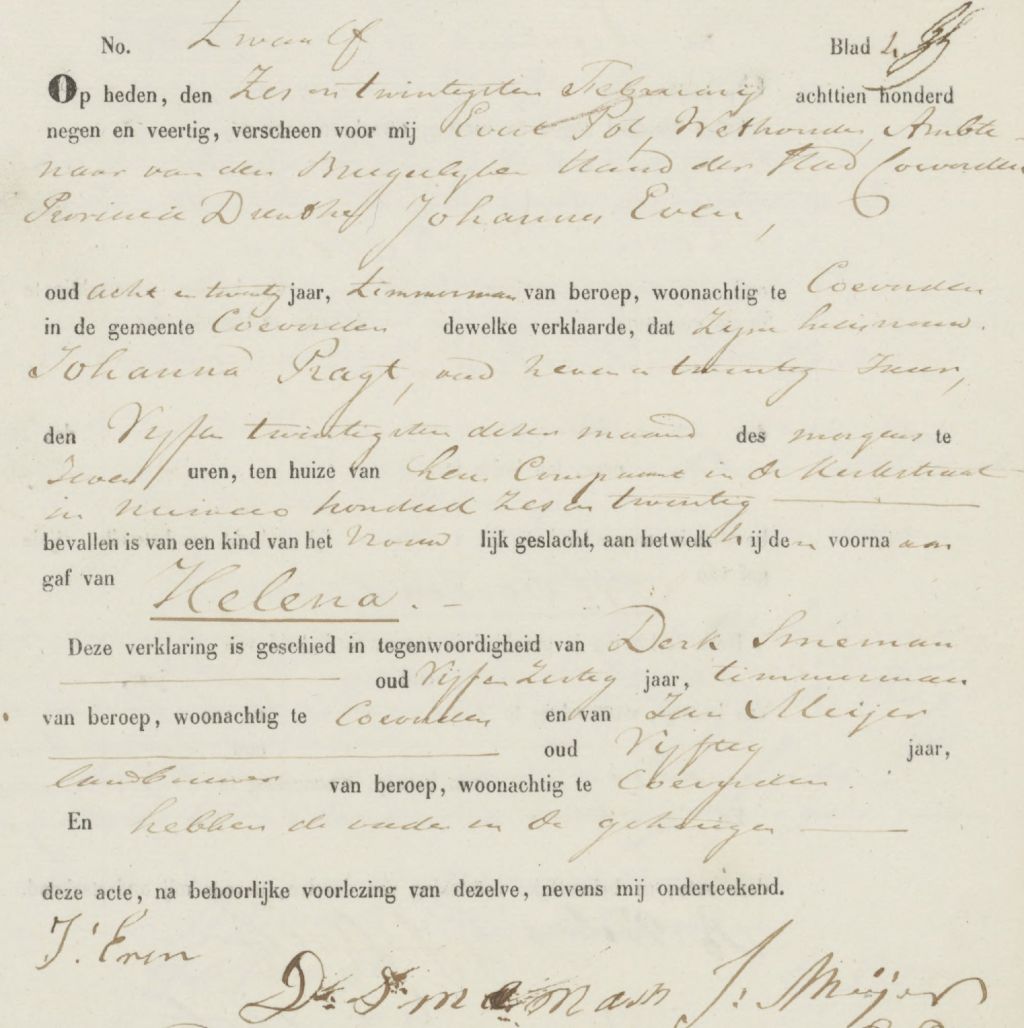 No. Twaalf Blad
Op heden, den Zes en twintigsten Februarij achttien honderd
negen en veertig, verscheen voor mij Evert Pol, Wethouder, Ambte-
naar van den Burgerlyken Stand der Stad Coevorden
Provincie Drenthe, Johannes Even,
oud acht en twintig jaar, timmerman van beroep, woonachtig te Coevorden
in de gemeente Coevorden dewelke verklaarde, dat Zijne huisvrouw.
Johanna Pragt, oud zeven en twintig Jaar,
den Vyf en twintigsten dezer maand des morgens te
Zeven uren, ten huize van hem Comparant in de Kerkstraat
in numero honderd Zes en twintig
bevallen is van een kind van het Vrouw lijk geslacht, aan hetwelk h ij de n voorna am
gaf van Helena.
Deze verklaring is geschied in tegenwoordigheid van Derk Smeman
oud Vyf en Zestig jaar, timmerman
van beroep, woonachtig te Coevorden en van Jan Meijer
oud Vyftig jaar,
landbouwer van beroep, woonachtig te Coevorden.
En hebben de vader en de getuigen
deze acte, na behoorlijke voorlezing van dezelve, nevens mij onderteekend.
J. Even
Dk Smeman J. Meijer